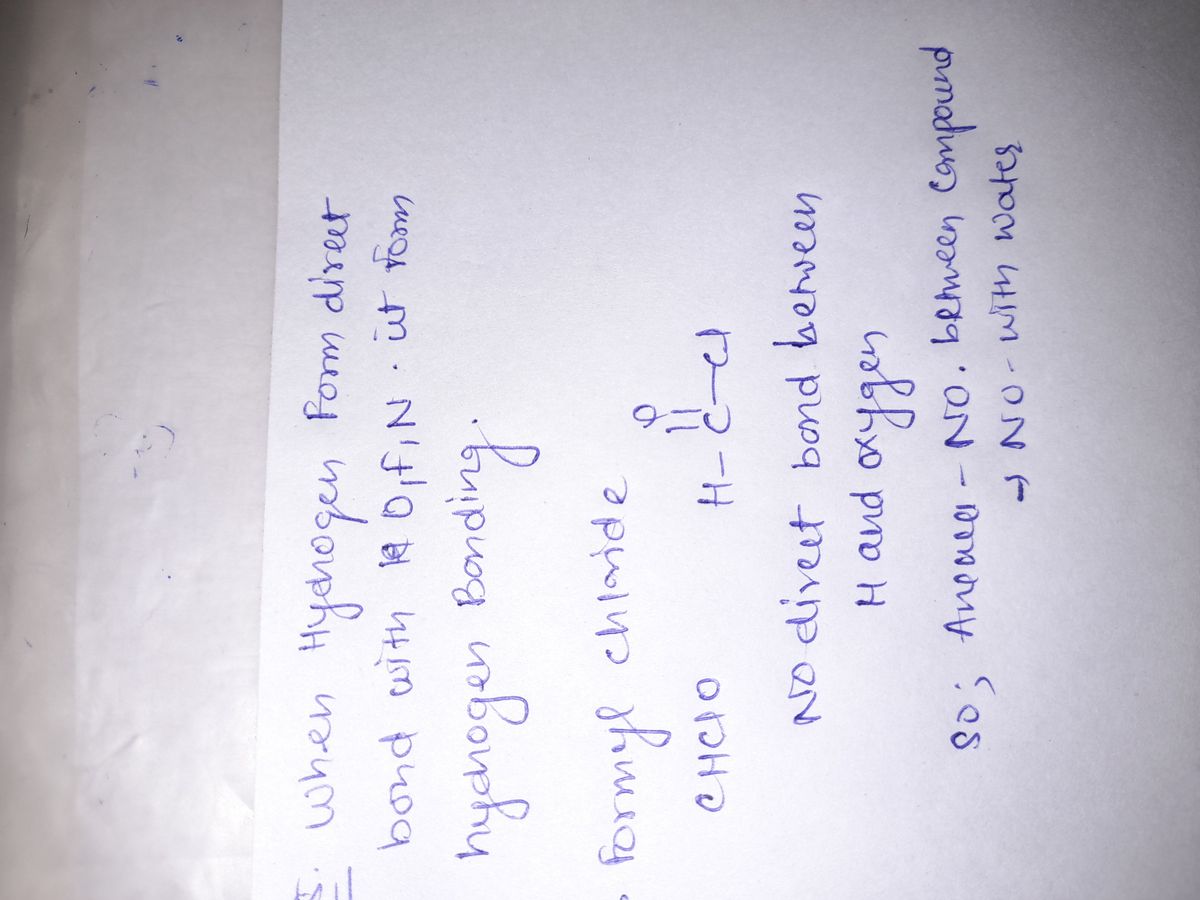 When Hydrogen Form direct
bond with O, F, N. it form
hydrogen Bonding.
Formyl chloride
CHClO
O
H-C-Cl
NO direct bond between
H and oxygen
So; - NO. between Compound
→ NO - with water